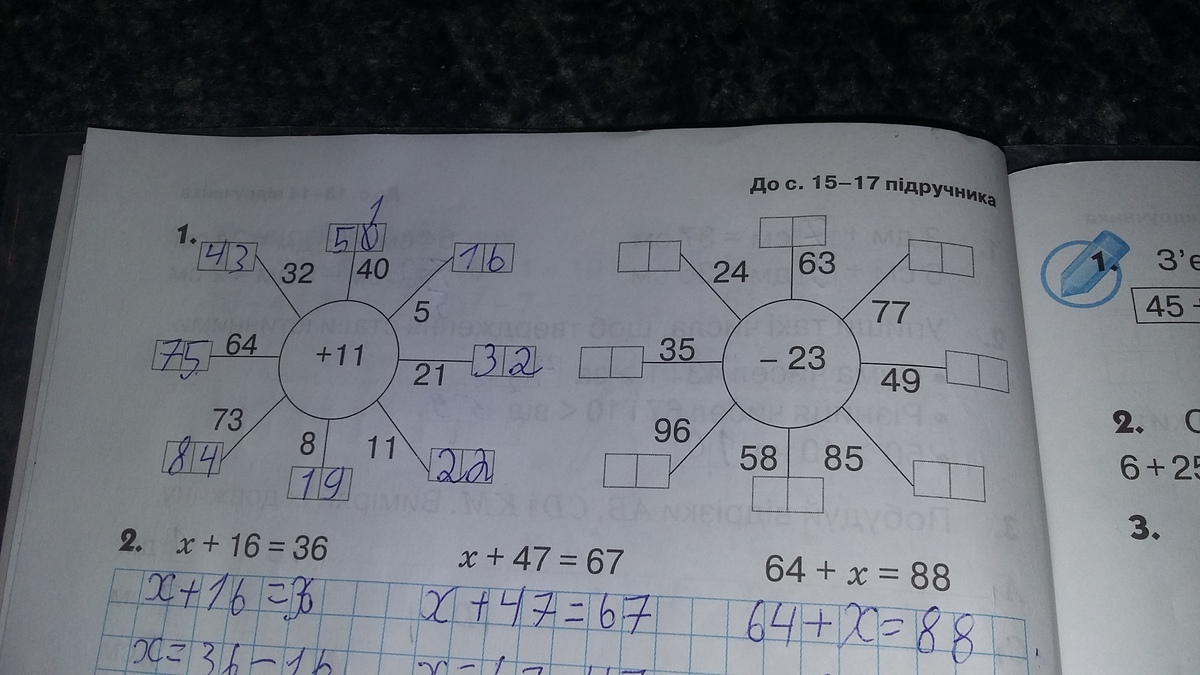 До с. 15–17 підручника
1.
43
50
1
16
32
40
5
75
64
+11
21
32
73
8
11
84
19
22
24
63
77
35
– 23
49
96
58
85
2. x + 16 = 36
x + 47 = 67
64 + x = 88
x+16=36
x+47=67
64+x=88
x=36-16
1. З'є
45
2. С
6 + 25
3.